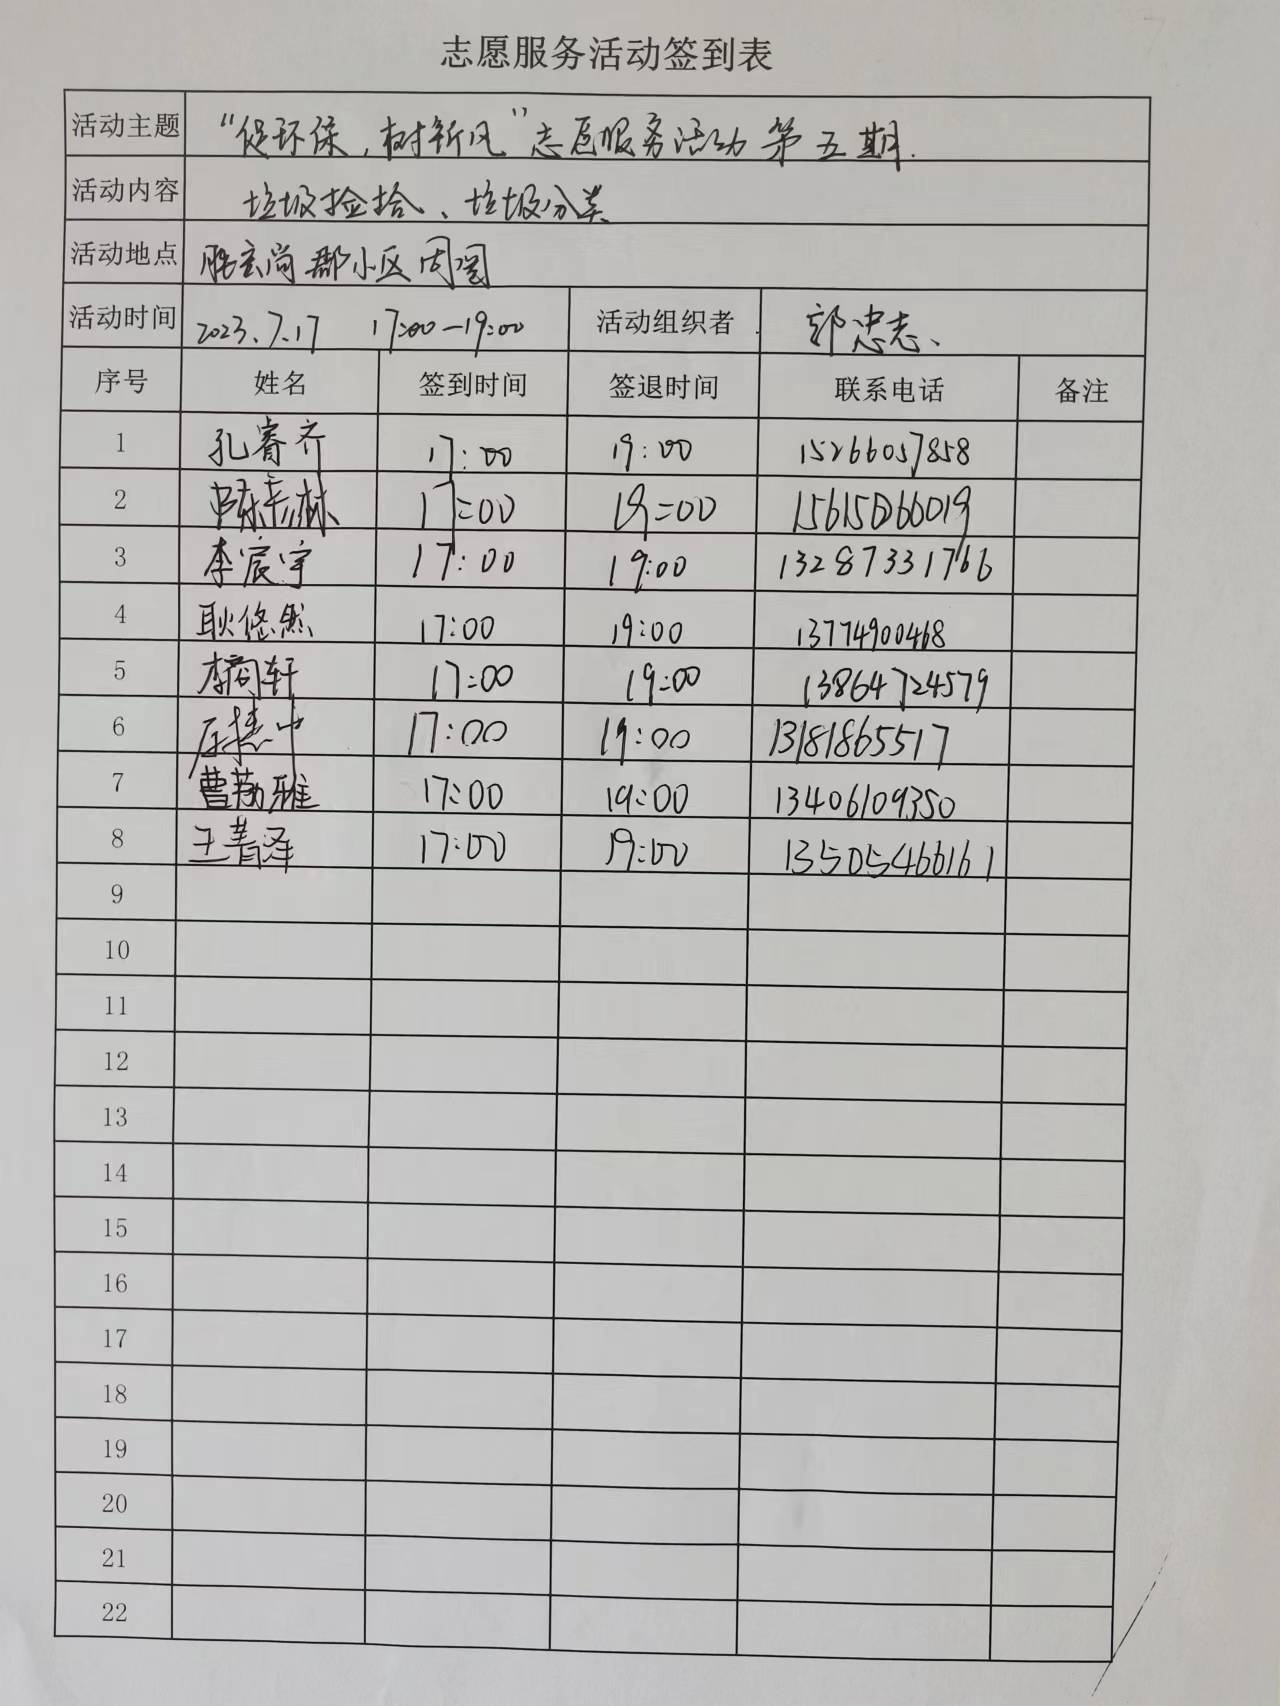 志愿服务活动签到表
活动主题 “促环保，树新风”志愿服务活动 第五期.
活动内容 垃圾捡拾、垃圾分类
活动地点 尚郡小区周围
活动时间 2023.7.17 17:00—19:00 活动组织者 郭忠志
序号 姓名 签到时间 签退时间 联系电话 备注
1 孔睿齐 17:00 19:00 15266057858
2 17:00 19:00 15615066019
3 李宸宇 17:00 19:00 13287331766
4 耿悠然 17:00 19:00 13774900468
5 17:00 19:00 13864724579
6 17:00 19:00 13181865517
7 17:00 19:00 13406109350
8 王菁泽 17:00 19:00 13505466161
9
10
11
12
13
14
15
16
17
18
19
20
21
22